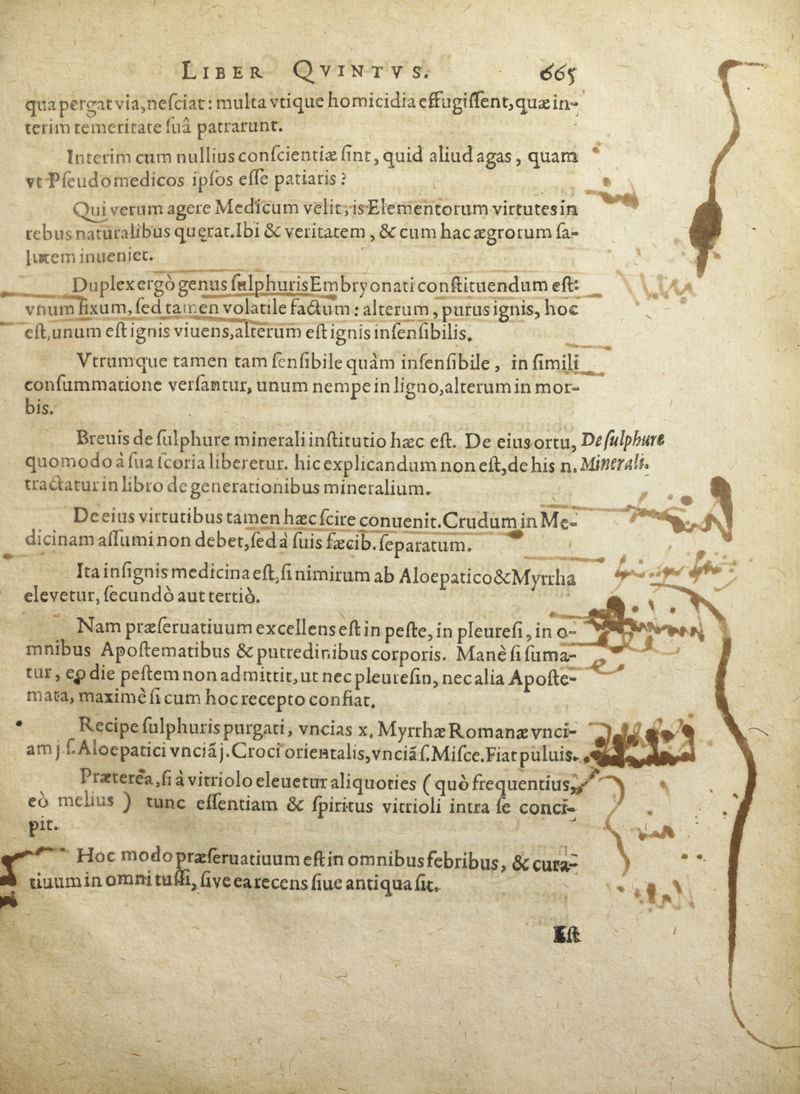 LIBER QVINTVS. 665
qua pergat via, neſciat: multa vtique homicidia effugiſſent, quæ in-
terim temeritate ſuâ patrarunt.
Interim cum nullius conſcientiæ ſint, quid aliud agas, quam
vt Pſeudomedicos ipſos eſſe patiaris?
Qui verum agere Medicum velit, is Elementorum virtutes in
rebus naturalibus quęrat. Ibi & veritatem, & cum hac ægrorum ſa-
lutem inueniet.
Duplex ergò genus ſulphuris Embryonati conſtituendum eſt:
vnum fixum, ſed tamen volatile factum: alterum, purus ignis, hoc
eſt, unum eſt ignis viuens, alterum eſt ignis inſenſibilis.
Vtrumque tamen tam ſenſibile quàm inſenſibile, in ſimili
conſummatione verſantur, unum nempe in ligno, alterum in mor-
bis.
Breuis de ſulphure minerali inſtitutio hæc eſt. De eius ortu, De ſulphure
quomodo à ſua ſcoria liberetur. hic explicandum non eſt, de his n. Minerali.
tractatur in libro de generationibus mineralium.
De eius virtutibus tamen hæc ſcire conuenit. Crudum in Me-
dicinam aſſumi non debet, ſed à ſuis fæcib. ſeparatum.
Ita inſignis medicina eſt, ſi nimirum ab Aloepatico & Myrrha
elevetur, ſecundò aut tertiò.
Nam præſeruatiuum excellens eſt in peſte, in pleureſi, in o-
mnibus Apoſtematibus & putredinibus corporis. Manè ſi ſuma-
tur, eo die peſtem non admittit, ut nec pleureſin, nec alia Apoſte-
mata, maximè ſi cum hoc recepto confiat.
Recipe ſulphuris purgati, vncias x. Myrrhæ Romanæ vnci-
am j ſ. Aloepatici vnciã j. Croci orientalis, vnciã ſ. Miſce. Fiat puluis.
Præterea, ſi à vitriolo eleuetur aliquoties (quò frequentius,
eò melius) tunc eſſentiam & ſpiritus vitrioli intra ſe conci-
pit.
Hoc modo præſeruatiuum eſt in omnibus febribus, & cura-
tiuum in omni tuſſi, ſive ea recens ſiue antiqua ſit.
Eſt